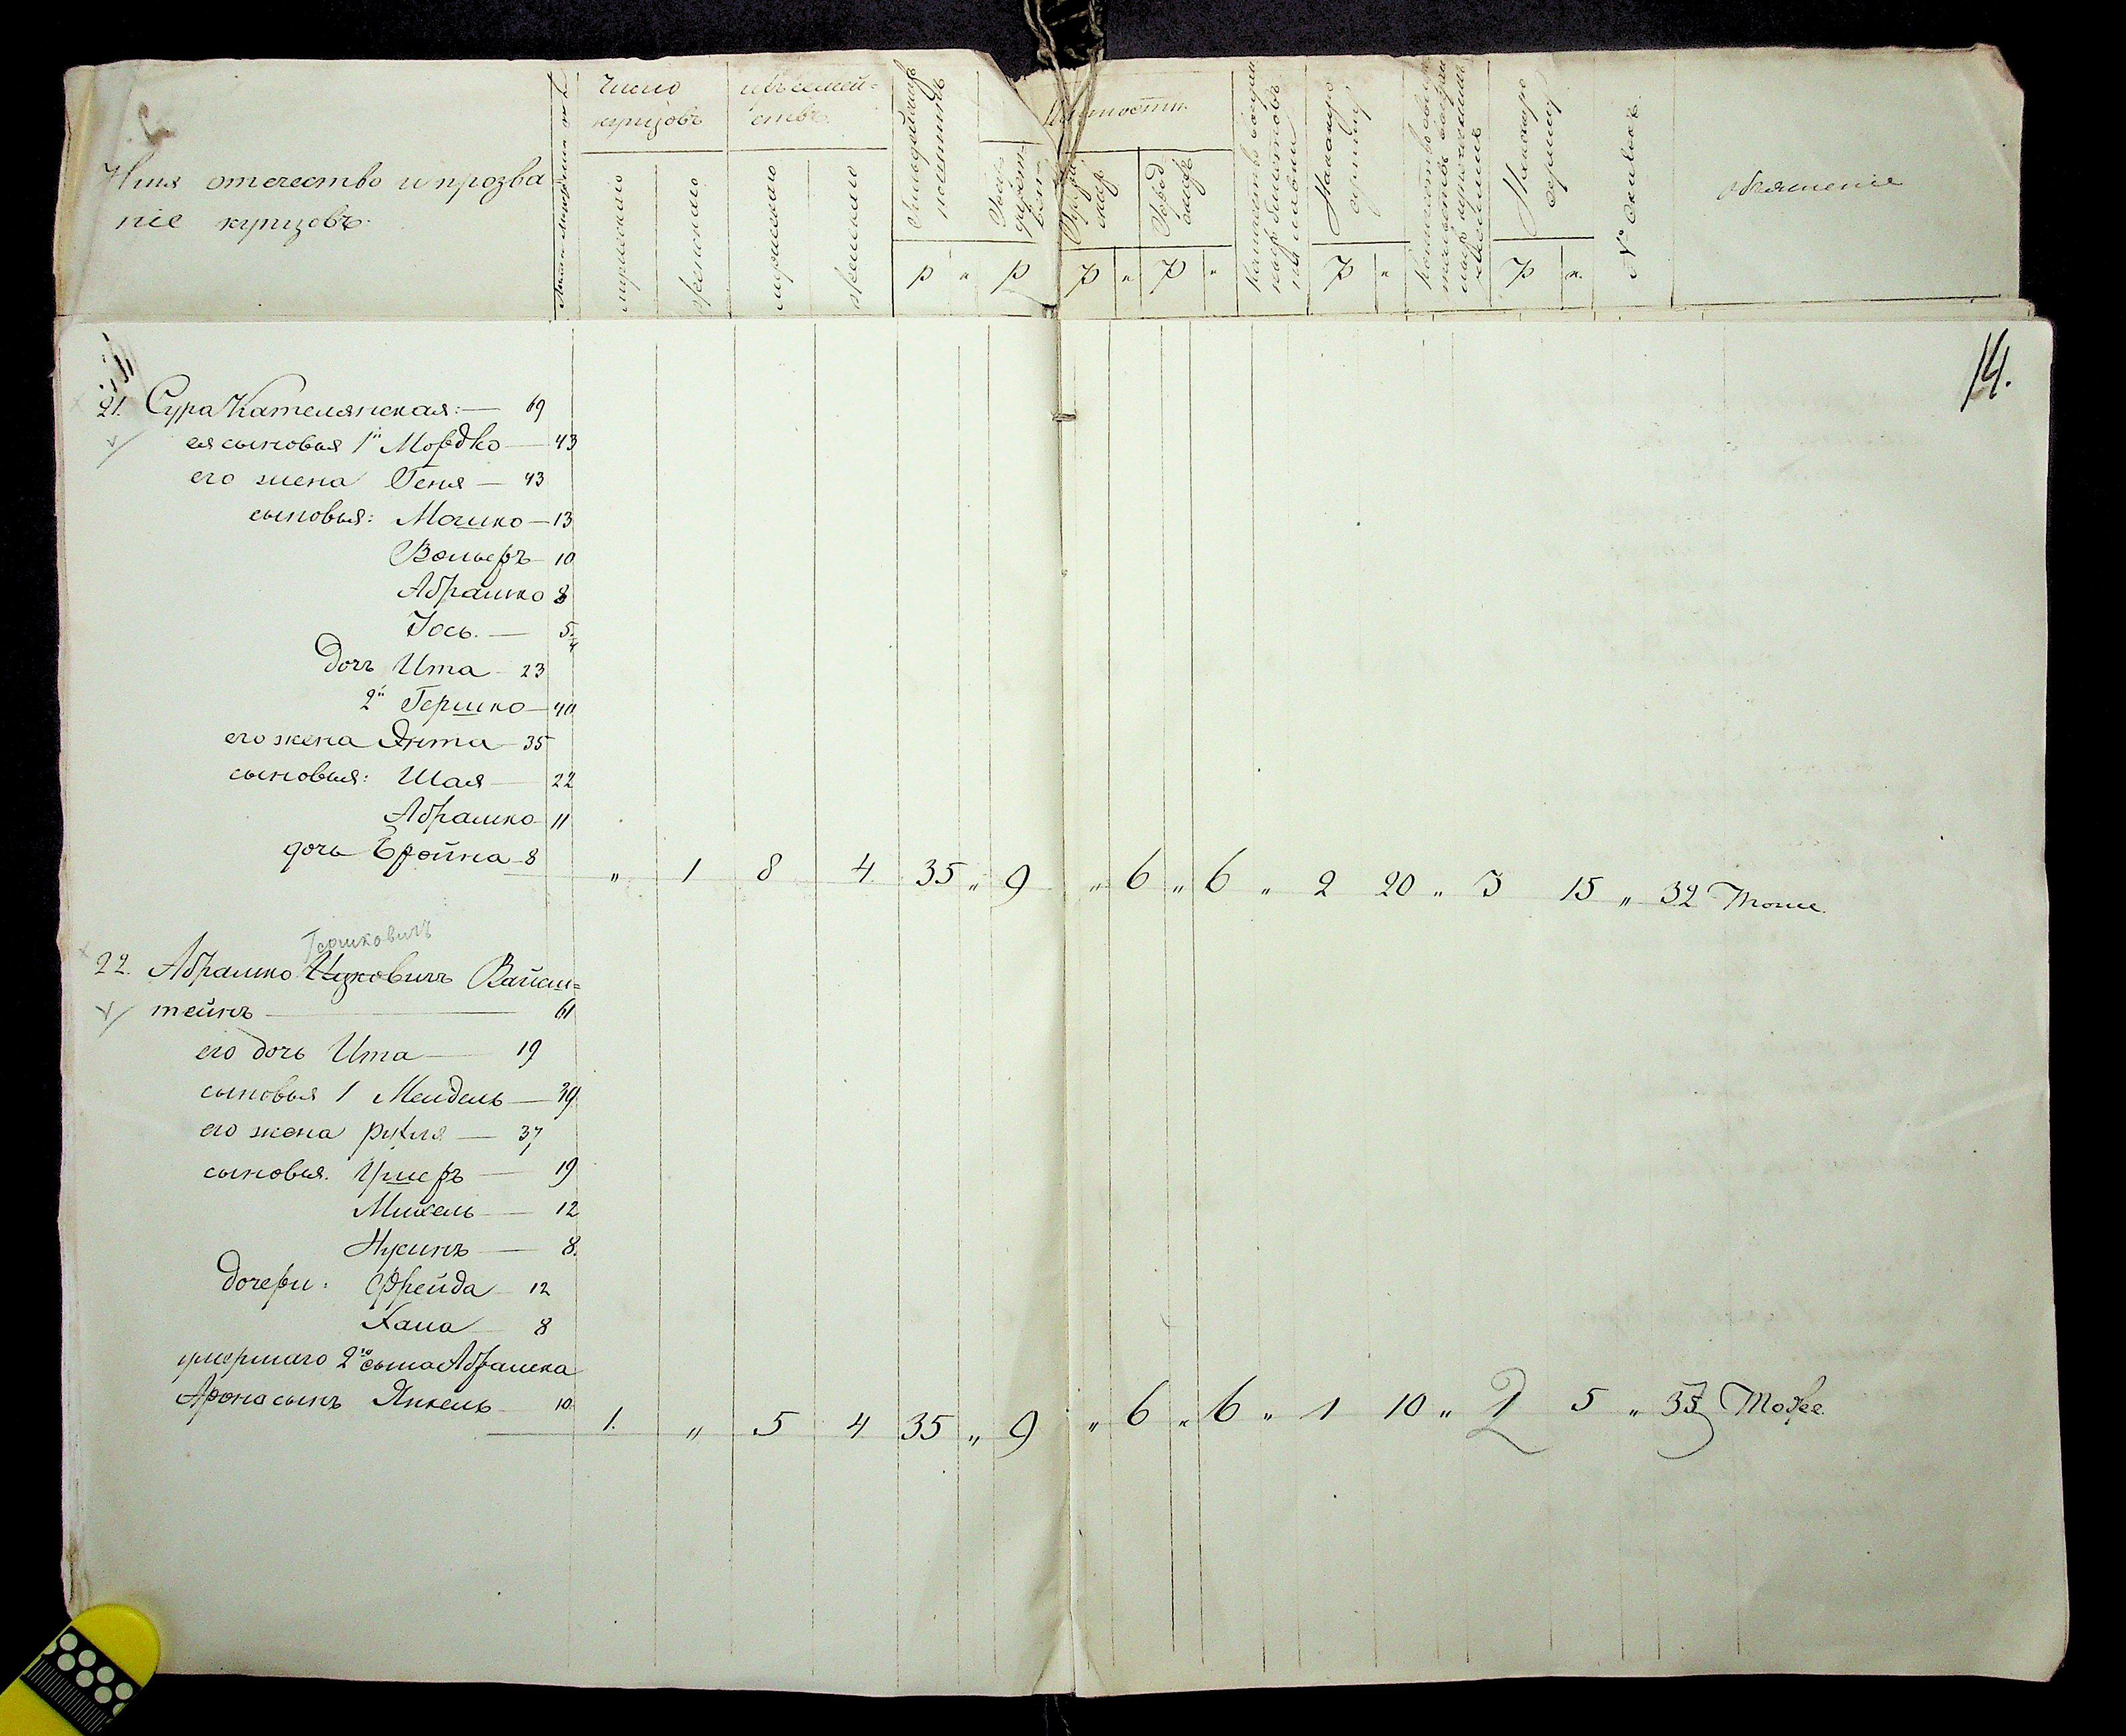 Имя отечество и прозва
ніе купцовъ.
Число
купцовъ
ихъ семей=
ствъ
мужеско
женско
мужеско
женско
р " р р " р " р " р "
№
объясненіе
14.
21. Сура Кателянская: — 69
ея сыновья 1й Мордко — 43
его жена Геня — 43
сыновья: Мошко — 13
Вольфъ 10
Абрашко 8
Іось. — 5
дочь Ита 23
2й Гершко — 40
его жена Янта 35
сыновья: Шая 22
Абрашко 11
дочь Бройна 8
" 1 8 4 35 " 9 " 6 " 6 " 2 20 " 3 15 " 32 Тоже.
Гершковичъ
22. Абрашко Ицковичъ Вайнш=
тейнъ 61
его дочь Ита 19
сыновья 1 Мендель — 39
его жена Рухля — 37
сыновья. Ушеръ — 19
Михель — 12
Нусинъ — 8.
дочери: Фрейда 12
Хана 8
умершаго 2го сына Абрашка
Арона сынъ Янкель 10
1. " 5 4 35 " 9 " 6 " 6 " 1 10 " 2 5 " 33 Тоже.